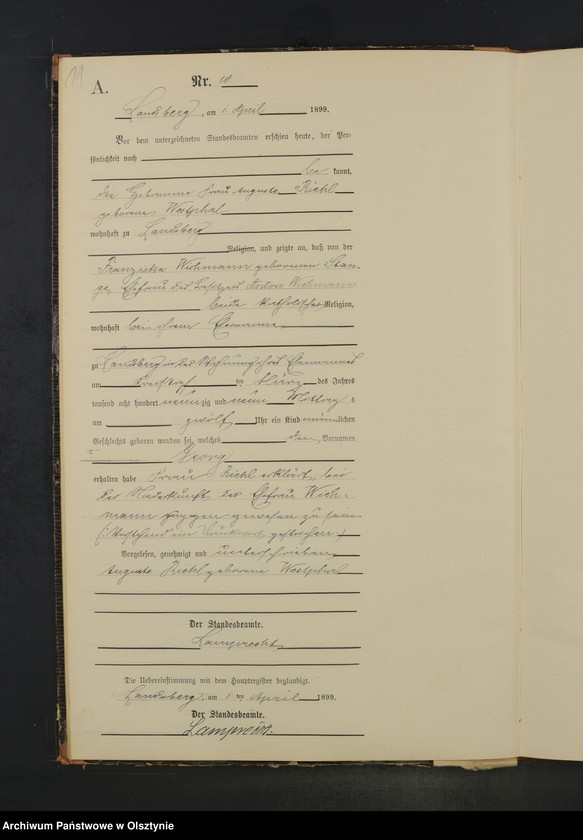 11
A.
Nr. 10
Landsberg, am 1 April 1899.
Vor dem unterzeichneten Standesbeamten erschien heute, der Per-
sönlichkeit nach
be kannt,
die Hebamme Frau Auguste Riehl
geborene Westphal
wohnhaft zu Landsberg
Religion, und zeigte an, daß von der
Franziska Wichmann geborenen Stan-
ge, Ehefrau des Besitzers Anton Wichmann
beide katholischer Religion,
wohnhaft bei ihrem Ehemanne,
zu Landsberg in der Wohnung ihres Ehemannes
am ten März des Jahres
tausend acht hundert neunzig und neun Mittags
um zwölf Uhr ein Kind männlichen
Geschlechts geboren worden sei, welches den Vornamen
Georg
erhalten habe Frau Riehl erklärt, bei
der Niederkunft der Ehefrau Wich-
mann zugegen gewesen zu sein
(: Vorstehend ein Druckwort gestrichen :)
Vorgelesen, genehmigt und unterschrieben
Auguste Riehl geborene Westphal
Der Standesbeamte.
Lamprecht
Die Uebereinstimmung mit dem Hauptregister beglaubigt.
Landsberg, am 1 ten April 1899.
Der Standesbeamte.
Lamprecht.
Archiwum Państwowe w Olsztynie